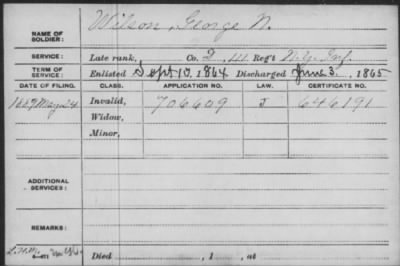 NAME OF SOLDIER: Wilson, George N.
SERVICE: Late rank, Co. D, 111 Reg't N.Y. Inf.
TERM OF SERVICE: Enlisted Sept 10, 1864 Discharged June 3, 1865
DATE OF FILING. CLASS. APPLICATION NO. LAW. CERTIFICATE NO.
1889 May 24 Invalid, 706609 J 646191
Widow,
Minor,
ADDITIONAL SERVICES:
REMARKS:
Died , 1 , at